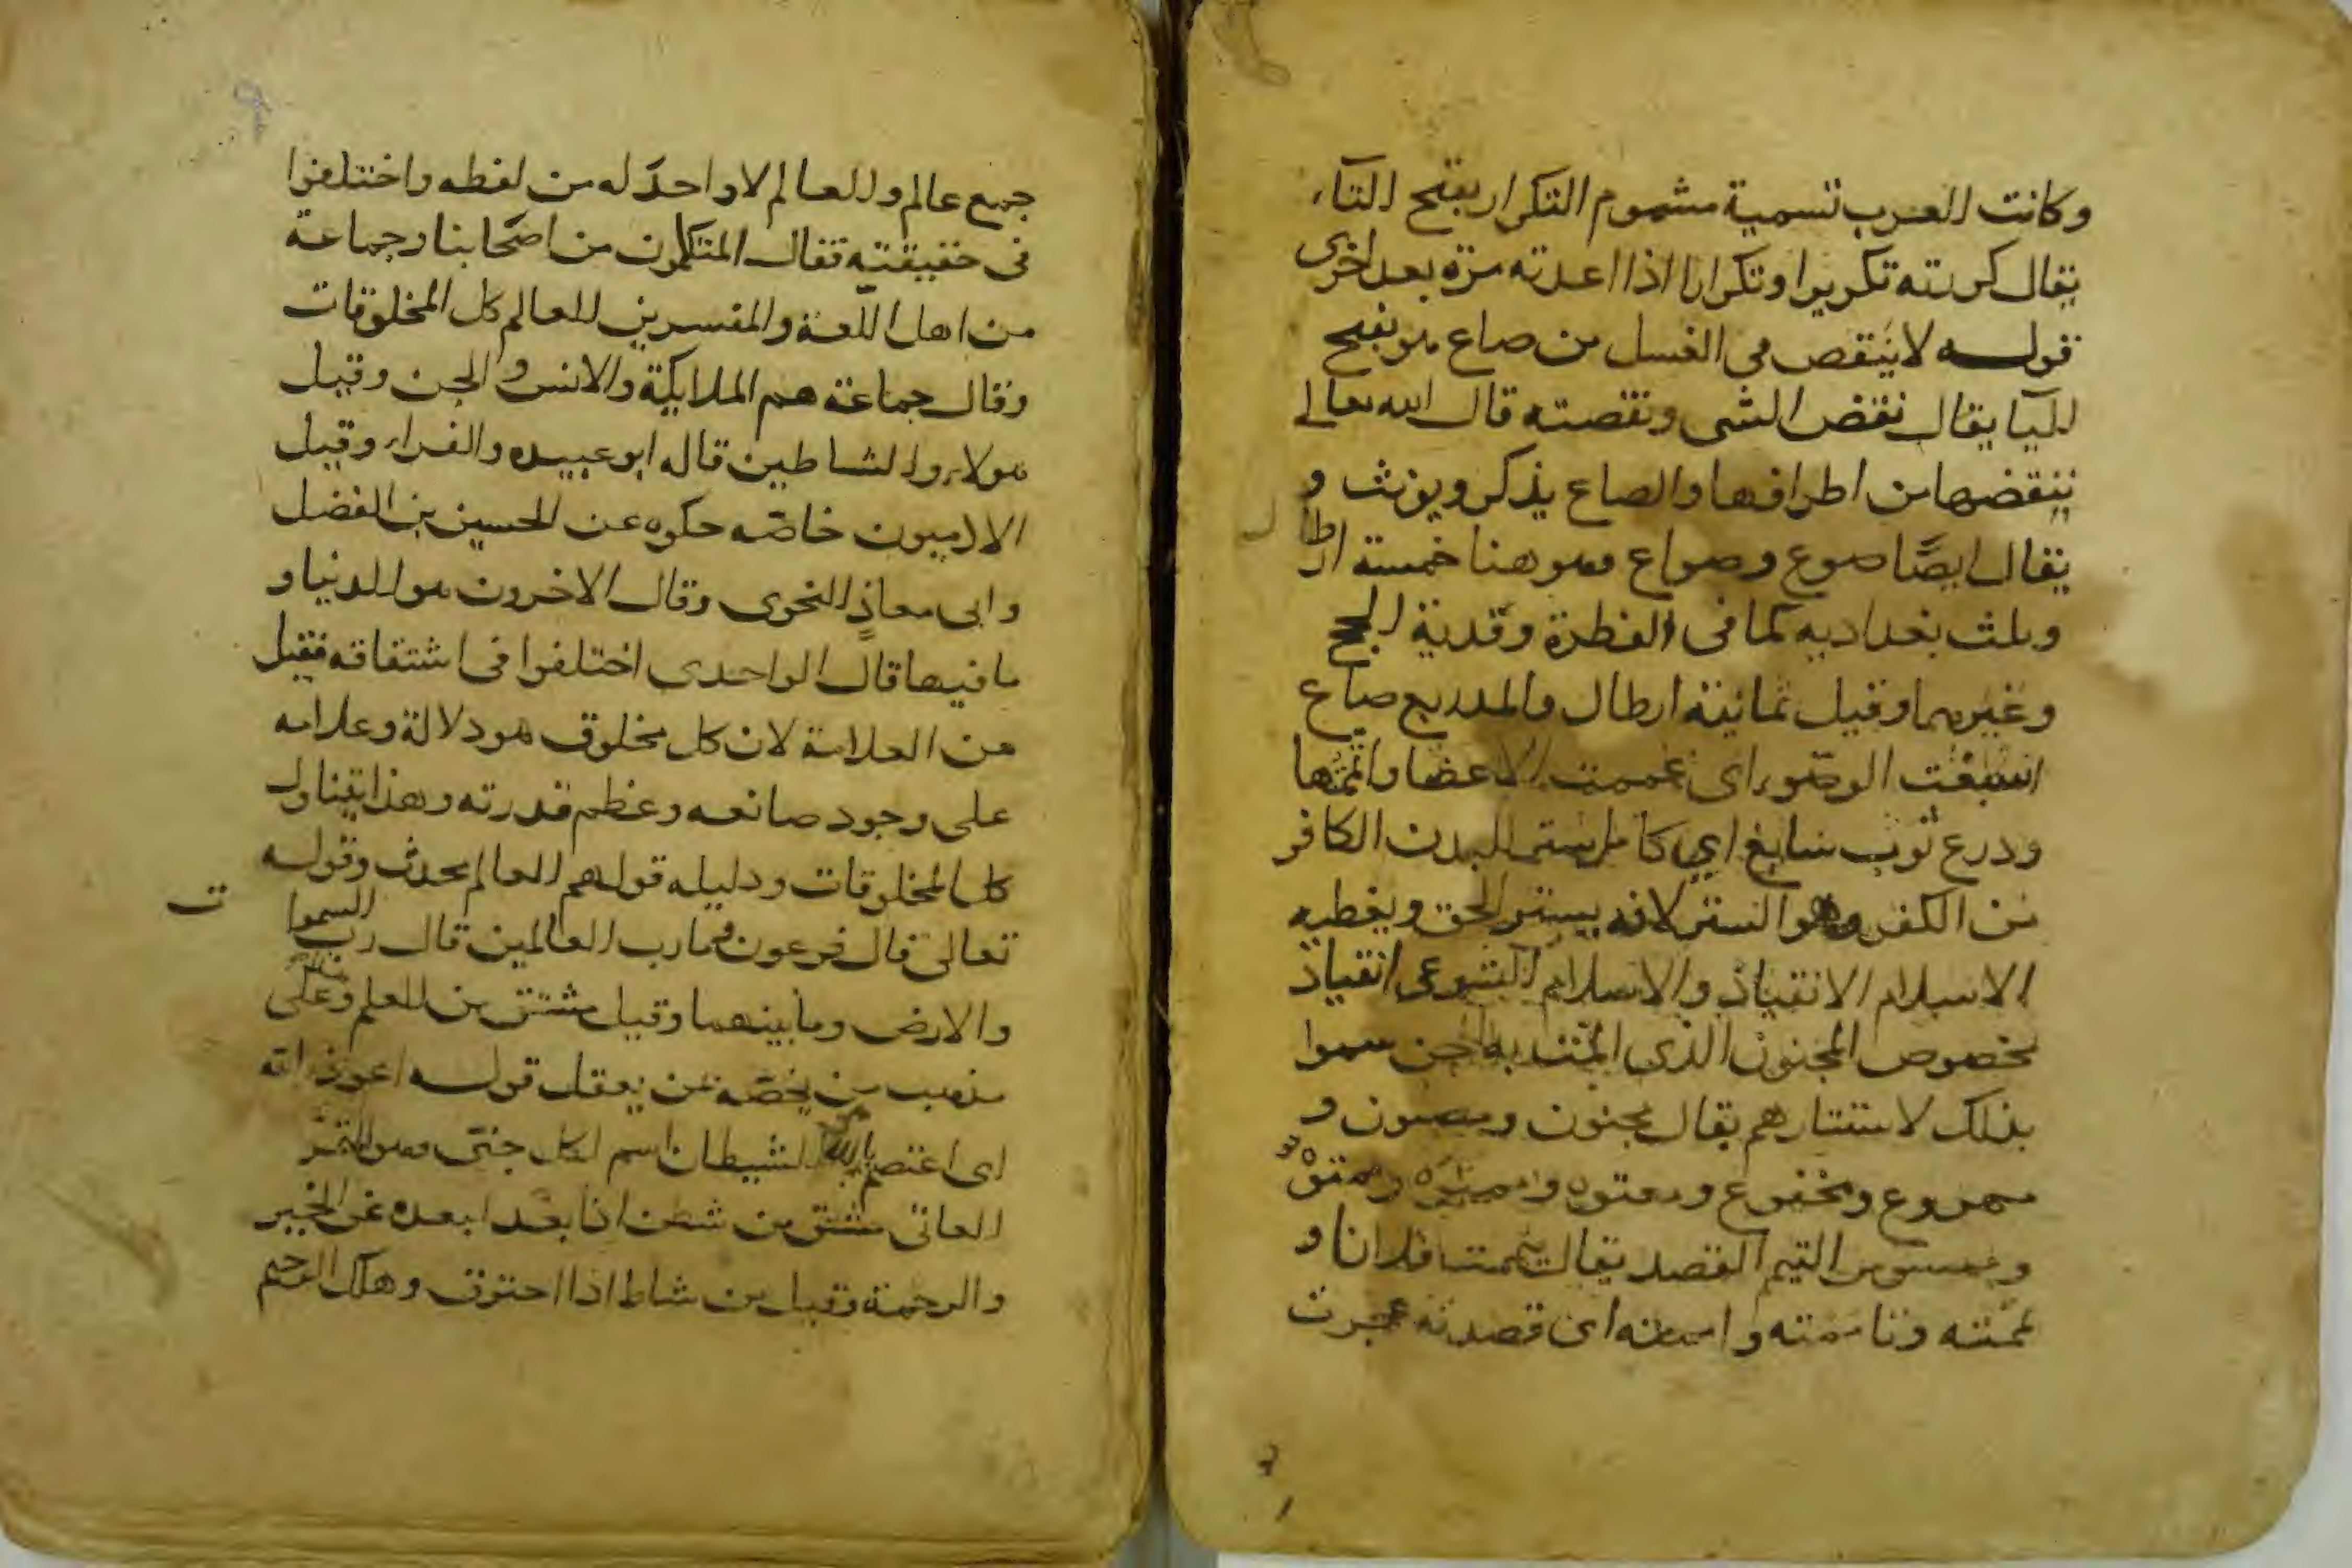 وكانت العرب تسمية مشموم التكرار بفتح التاء
يقال كررته تكريرا وتكرارا اذا اعدته مرة بعد اخرى
قوله لا ينقص في الغسل من صاع هو بفتح
اليا يقال نقض الشى ونقصته قال الله تعالى
ننقضها من اطرافها والصاع يذكر ويونث و
يقال ايضًا صوع وصواع وهو هنا خمسة ارطال
وثلث بغداديه كما في الفطرة وفدية الحج
وغيرهما وقيل ثمانية ارطال والمد ربع صاع
اسبغت الوضوء اى عممت الاعضا واتممتها
ودرع ثوب سابغ اي كامل يستر البدن الكافر
من الكفر وهو الستر لانه يستر الحق ويغطيه
الاسلام الانقياد والاسلام الشرعى انقياد
مخصوص المجنون الذى به الجن سموا
بذلك لاستتارهم يقال مجنون و
مهروع ومخفوع ومعتوه و
و التيمم القصد يقال تيممت فلانا و
يممته وتاممته و اى قصدته
جمع عالم والعالم لا واحد له من لفظه واختلفوا
فى حقيقته فقال المتكلمون من اصحابنا وجماعة
من اهل اللغة والمفسرين العالم كل المخلوقات
وقال جماعة هم الملايكة والانس والجن وقيل
هولاء والشاطين قاله ابو عبيده والفراء وقيل
الادميون خاصّه حكوه عن الحسين بن الفضل
وابى معاذ النحوى وقال الاخرون هو الدنيا و
ما فيها قال الواحدى اختلفوا فى اشتقاقه فقيل
من العلامة لان كل مخلوق هو دلالة وعلامه
على وجود صانعه وعظم قدرته وهذا يتناول
كل المخلوقات ودليله قولهم العالم محدث وقوله
تعالى قال فرعون وما رب العالمين قال رب السموات
والارض وما بينهما وقيل مشتق من العلم وعلى
مذهب من يخصّه بمن يعقل قوله اعوذ بالله
اى اعتصم بالله الشيطان اسم لكل جنى وهو المتمرد
العاتى مشتق من شطن اذا بعُد ابعده عن الخير
والرحمة وقيل من شاط اذا احترق وهلك الرجيم